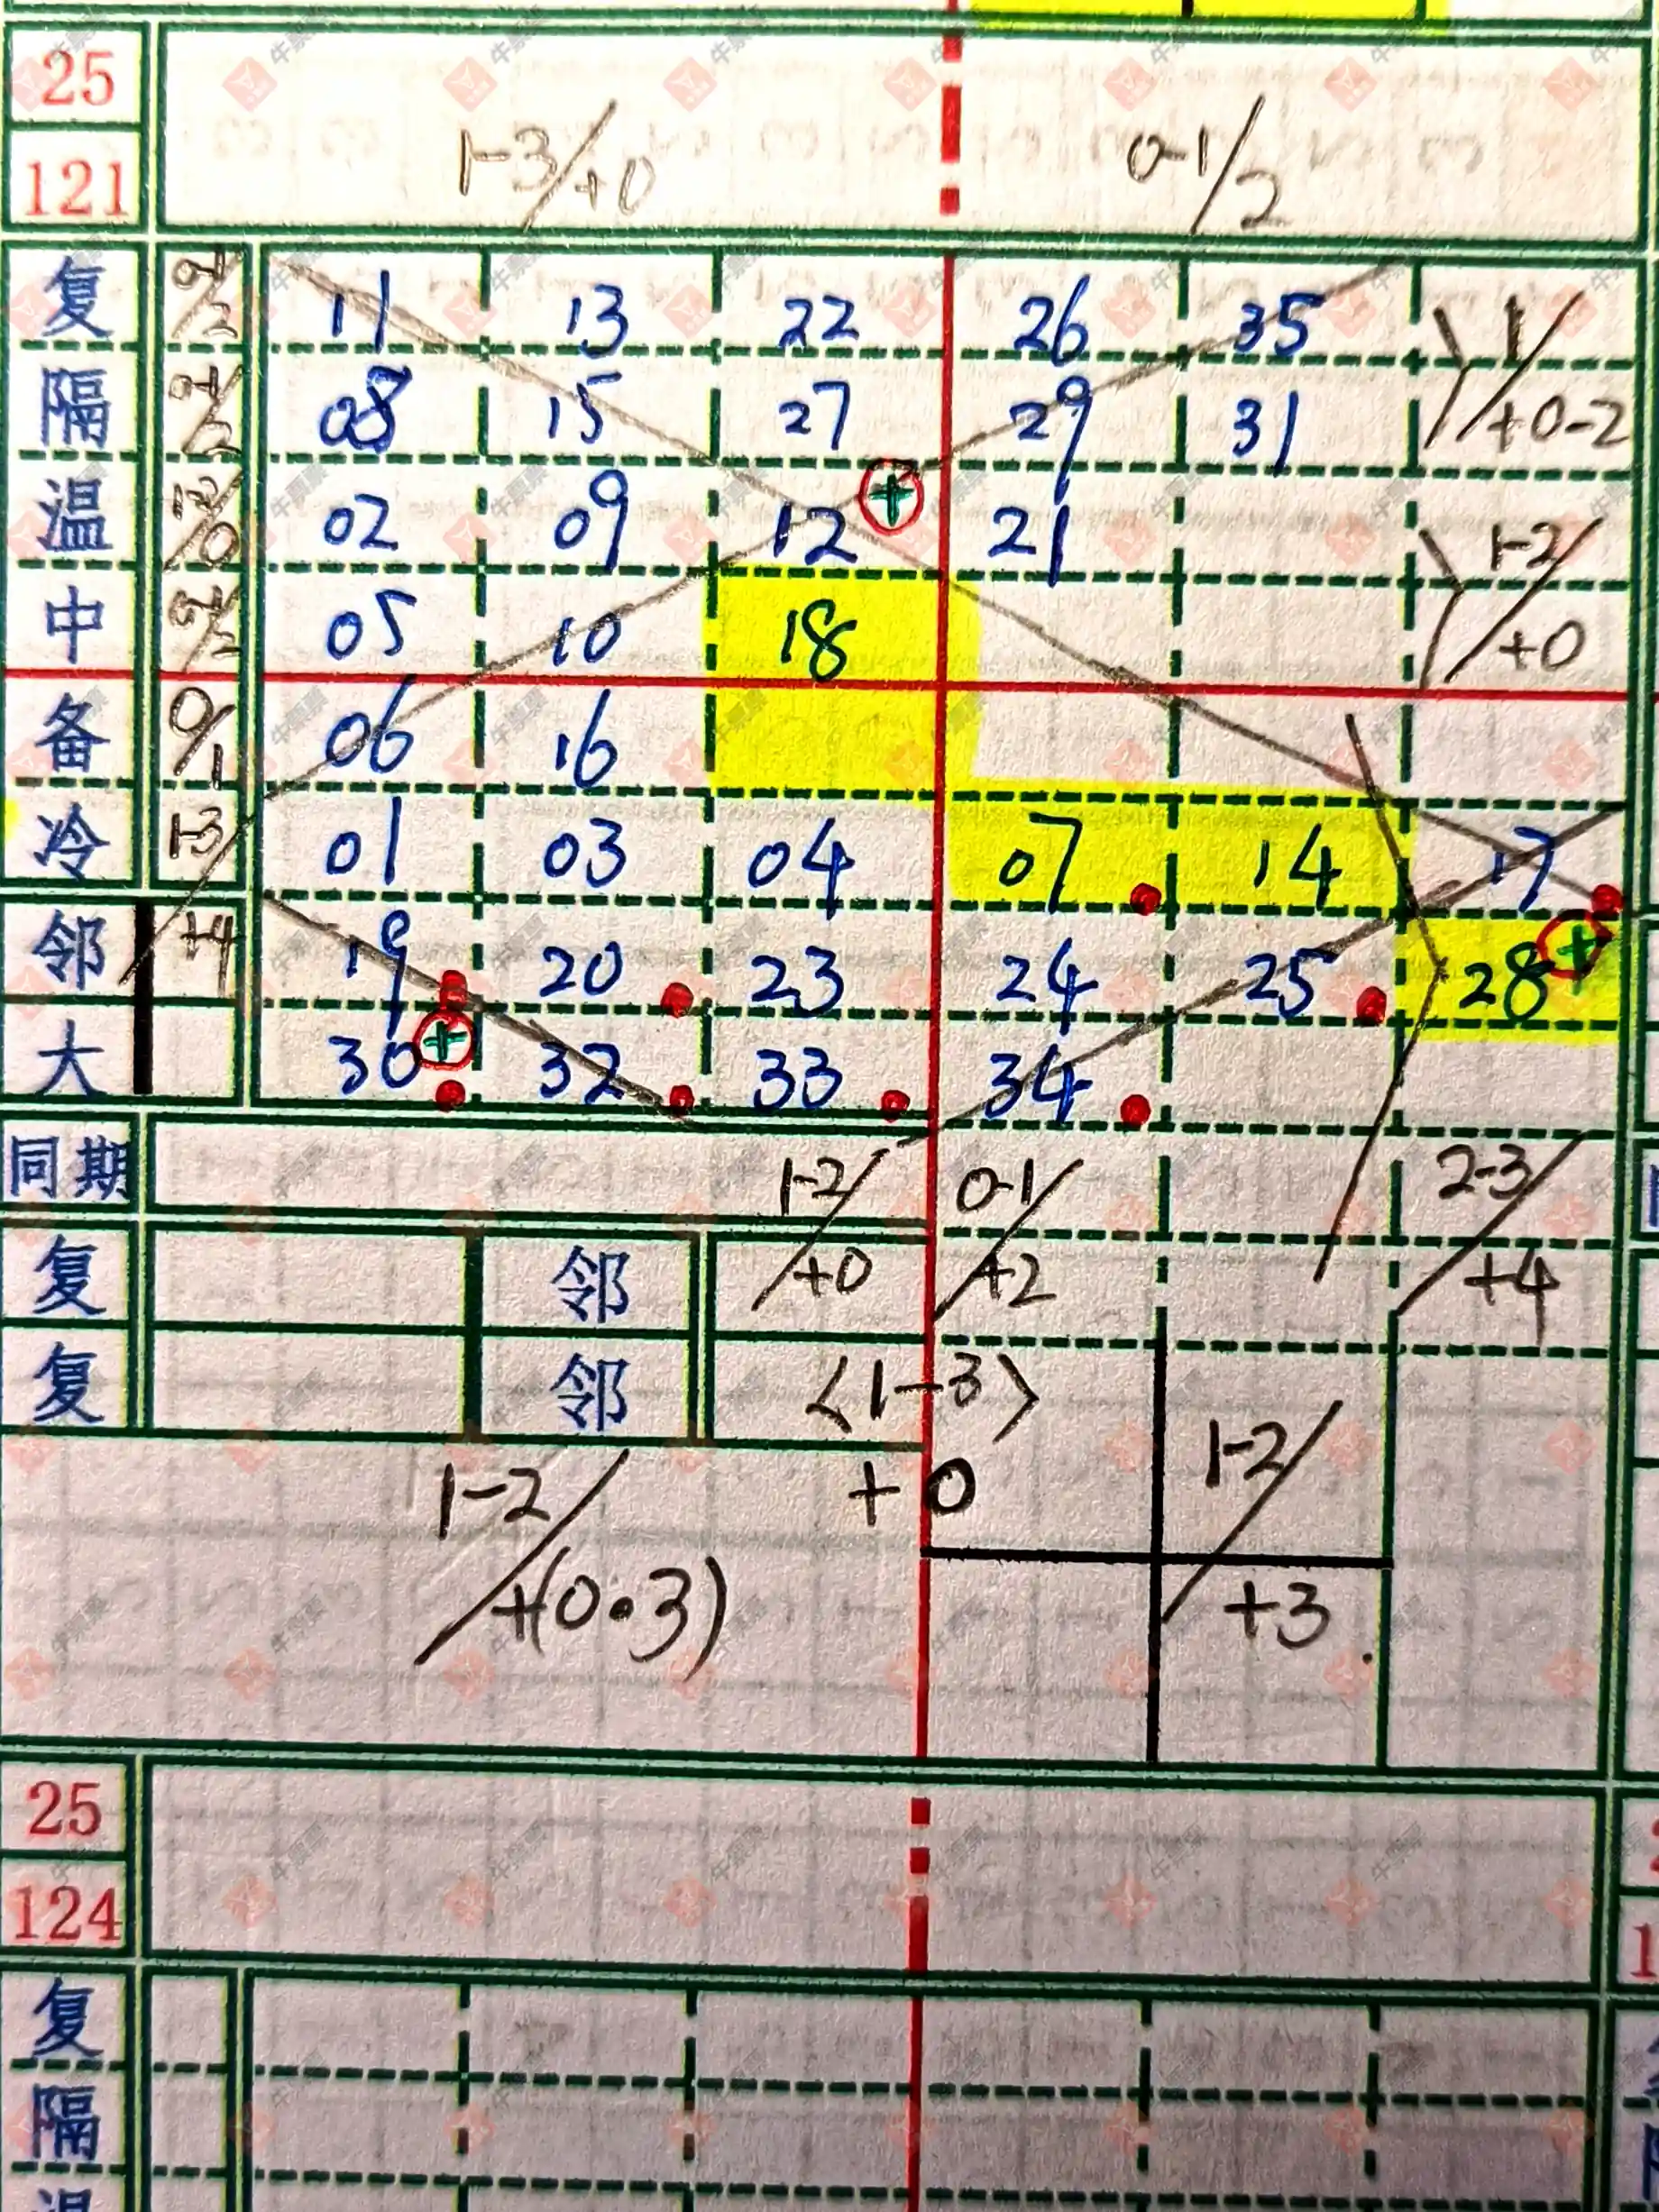 25
121
1-3/+0 0-1/2
复 0-1/2 11 13 22 26 35 1/+0-2
隔 0-1/2 08 15 27 29 31
温 1-2/0 02 09 12 + 21 1-2/+0
中 05 10 18
备 0/1 06 16
冷 1-3 01 03 04 07 14 17
邻 +4 19 20 23 24 25 28 +
大 30 + 32 33 34
同期 1-2/+0 0-1/+2 2-3/+4
复 邻
复 邻 〈1-3〉
+0
1-2/+(0·3) 1-2/+3
25
124
复
隔
温
牛票票